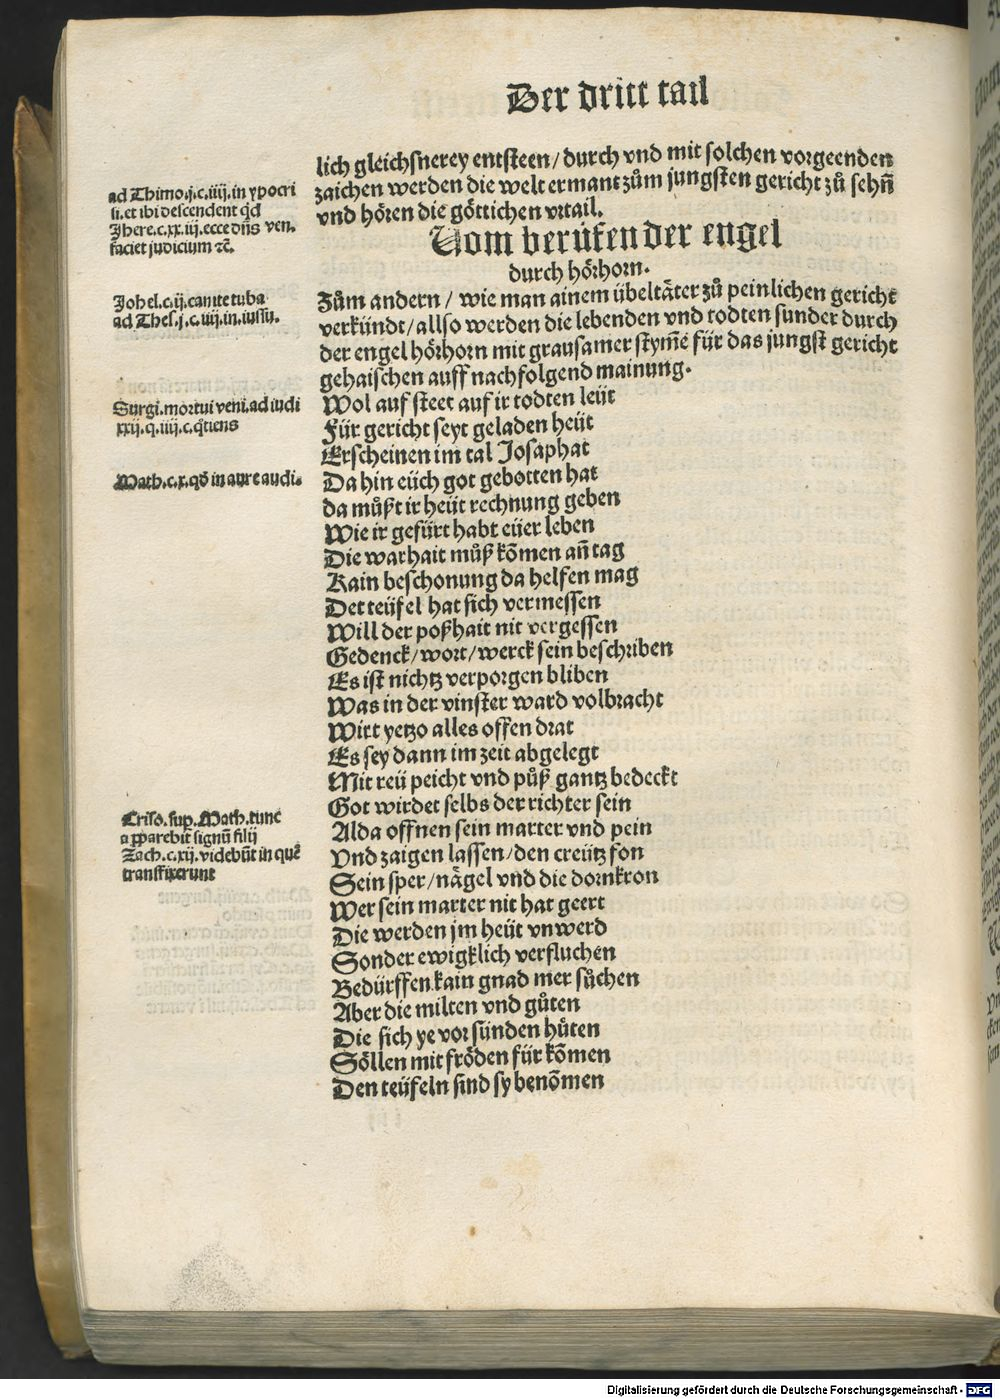 Der dritt tail
lich gleichsnerey entsteen/ durch vnd mit solchen vorgeenden
zaichen werden die welt ermant zům jungsten gericht zů sehñ
vnd hören die göttichen vrtail.
Vom berüfen der engel
durch hörhorn.
Zům andern/ wie man ainem übeltäter zů peinlichen gericht
verkündt/ allso werden die lebenden vnd todten sunder durch
der engel hörhorn mit grausamer stym̄e für das jungst gericht
gehaischen auff nachfolgend mainung.
Wol auf steet auf ir todten leüt
Für gericht seyt geladen heüt
Erscheinen im tal Josaphat
Da hin eüch got gebotten hat
da můßt ir heüt rechnung geben
Wie ir gefürt habt eüer leben
Die warhait můß kōmen añ tag
Kain beschonung da helfen mag
Det teüfel hat sich vermessen
Will der poßhait nit vergessen
Gedenck/ wort/ werck sein beschriben
Es ist nichtz verporgen bliben
Was in der vinster ward volbracht
Wirt yetzo alles offen drat
Es sey dann im zeit abgelegt
Mit reü peicht vnd půß gantz bedeckt
Got wirdet selbs der richter sein
Alda offnen sein marter vnd pein
Vnd zaigen lassen/ den creütz fon
Sein sper/ nägel vnd die dornkron
Wer sein marter nit hat geert
Die werden jm heüt vnwerd
Sonder ewigklich verfluchen
Bedürffen kain gnad mer sůchen
Aber die milten vnd gůten
Die sich ye vor sünden hůten
Söllen mit fröden für kōmen
Den teüfeln sind sy benōmen
ad Thimo.j.c.iiij.in ypocri
si.et ibi descendent q̄d
Jhere.c.xx.iij.ecce dn̄s ven.
faciet judicium ⁊c̄.
Johel.c.ij.canite tuba
ad Thes.j.c.iiij.in.iussu.
Surgi.mortui veni.ad iudi
xxij.q.iiij.c.q̄tiens
Math.c.x.qd̄ in aure audi.
Criso.sup.Math.tunc
apparebit signū filij
Zach.c.xij.videbūt in quē
transfixerunt
Digitalisierung gefördert durch die Deutsche Forschungsgemeinschaft - DFG